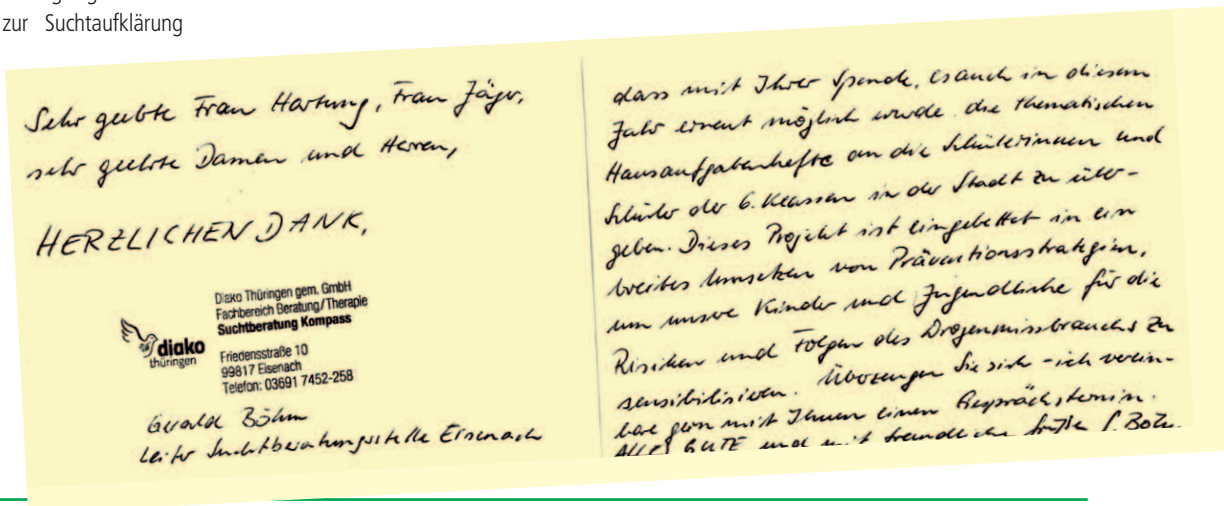 zur Suchtaufklärung
Sehr geehrte Frau Hartung, Frau Jäger,
sehr geehrte Damen und Herren,
HERZLICHEN DANK,
Diako Thüringen gem. GmbH
Fachbereich Beratung/Therapie
Suchtberatung Kompass
diako
thüringen
Friedensstraße 10
99817 Eisenach
Telefon: 03691 7452-258
Gerald Böhm
Leiter Suchtberatungsstelle Eisenach
dass mit Ihrer Spende, es auch in diesem
Jahr erneut möglich wurde die thematischen
Hausaufgabenhefte an die Schülerinnen und
Schüler der 6. Klassen in der Stadt zu über-
geben. Dieses Projekt ist eingebettet in ein
breites Umsetzen von Präventionsstrategien,
um unsere Kinder und Jugendliche für die
Risiken und Folgen des Drogenmissbrauchs zu
sensibilisieren. Überzeugen Sie sich - ich verein-
bare gern mit Ihnen einen Gesprächstermin.
ALLES GUTE und mit freundlichen Grüßen G. Böhm